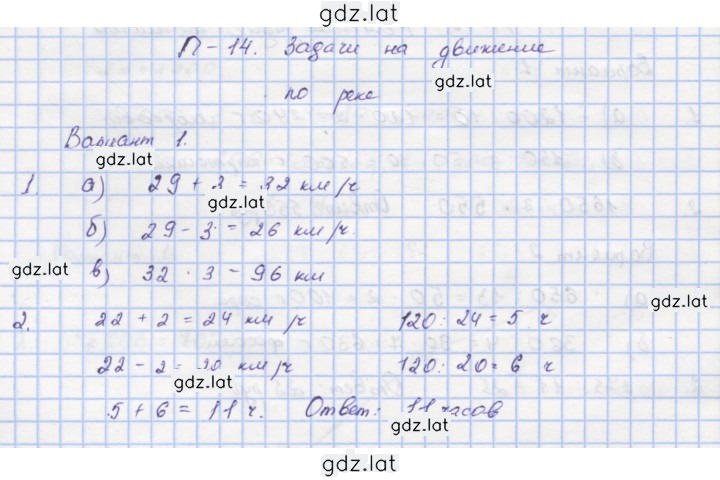 gdz.lat
П-14. Задачи на движение
gdz.lat
по реке
Вариант 1.
gdz.lat
1. а) 29 + 3 = 32 км/ч
gdz.lat
б) 29 - 3 = 26 км/ч.
gdz.lat в) 32 · 3 = 96 км
gdz.lat
2. 22 + 2 = 24 км/ч 120 : 24 = 5 ч
22 - 2 = 20 км/ч 120 : 20 = 6 ч
gdz.lat
5 + 6 = 11 ч. Ответ: 11 часов
gdz.lat
gdz.lat